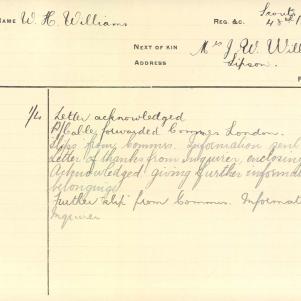 NAME W. H. Williams
REG. &C. Scouts
NEXT OF KIN Mrs J. W. Will
ADDRESS Sipson.
1/4 Letter acknowledged
P/Cable forwarded Commrs London.
Slips from Commrs. Information sent
Letter of thanks from inquirer, enclosing
Acknowledged giving further informat
belongings
Further slip from Commrs. Informat
Inquirer